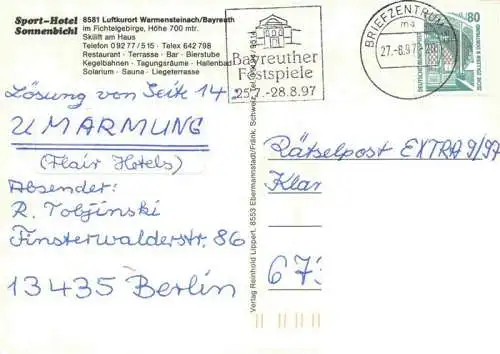 Sport-Hotel
Sonnenbichl
8581 Luftkurort Warmensteinach/Bayreuth
im Fichtelgebirge, Höhe 700 mtr.
Skilift am Haus
Telefon 09277/515 · Telex 642798
Restaurant · Terrasse · Bar · Bierstube
Kegelbahnen · Tagungsräume · Hallenbad
Solarium · Sauna · Liegeterrasse
Lösung von Seite 142
UMARMUNG
(Flair Hotels)
Absender:
R. Tobjinski
Finsterwalderstr. 86
13435 Berlin
Verlag Reinhold Lippert, 8553 Ebermannstadt/Fränk. Schweiz, Tel.
Bayreuther
Festspiele
25.7.-28.8.97
BRIEFZENTRUM
27.-8.97
80
DEUTSCHE BUNDESPOST
Rätselpost EXTRA 9/97
Klar
673